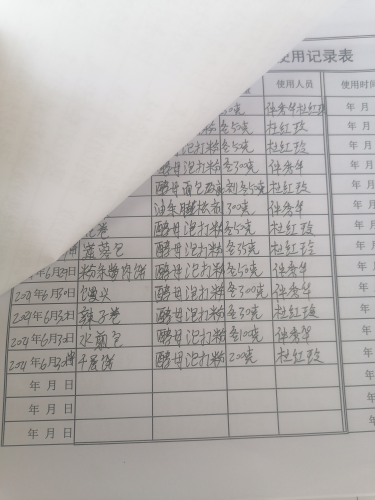 使用记录表
使用人员 使用时间
0克 伴秀华杜红玲 年 月
粉各50克 杜红玲 年 月
泡打粉各5克 杜红玲 年 月
酵母泡打粉各30克 伴秀华 年 月
酵母 杜红玲 年 月
油条膨松剂 30克 伴秀华 年 月
卷 酵母泡打粉各50克 杜红玲 年
菠萝包 酵母泡打粉各35克 杜红玲 年
年6月29日 酵母泡打粉各50克 伴秀华 年
2021年6月30日 酵母泡打粉各300克 伴秀华 年
2021年6月30日 辣子卷 酵母泡打粉各30克 杜红玲 年
2021年6月30日 水煎包 酵母泡打粉各100克 伴秀华 年
2021年6月30日 千层饼 酵母泡打粉 200克 杜红玲 年
年 月 日 年
年 月 日 年
年 月 日 年